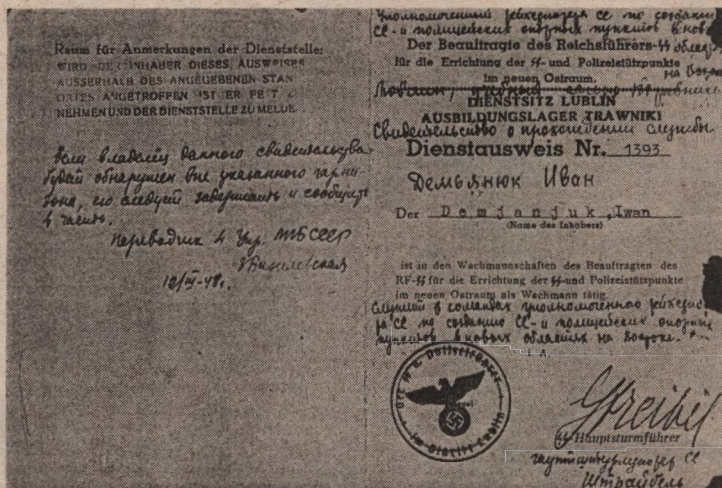 Raum für Anmerkungen der Dienststelle:
WIRD DER INHABER DIESES AUSWEISES
AUSSERHALB DES ANGEGEBENEN STAN
ORTES ANGETROFFEN IST ER FEST
NEHMEN UND DER DIENSTSTELLE ZU MELDE
Если владелец данного свидетельства
будет обнаружен вне указанного гарни-
зона, его следует задержать и сообщить
в часть.
Переводчик 4 Упр. МГБ СССР
Василевская
12/III-48г.
уполномоченный рейхсфюрера СС по созданию
СС- и полицейских опорных пунктов в новых
Der Beauftragte des Reichsführers-SS
für die Errichtung der SS- und Polizeistützpunkte
im neuen Ostraum.
на
DIENSTSITZ LUBLIN
AUSBILDUNGSLAGER TRAWNIKI
Свидетельство о прохождении службы
Dienstausweis Nr. 1393
Демьянюк Иван
Der Demjanjuk, Iwan
(Name des Inhabers)
ist in den Wachmannschaften des Beauftragten des
RF-SS für die Errichtung der SS- und Polizeistützpunkte
im neuen Ostraum als Wachmann tätig.
Служит в командах уполномоченного рейхсфю
ра СС по созданию СС- и полицейских опорных
пунктов в новых областях на Востоке.
I. A.
Streibel
SS Hauptsturmführer
гауптштурмфюрер СС
Штрайбель